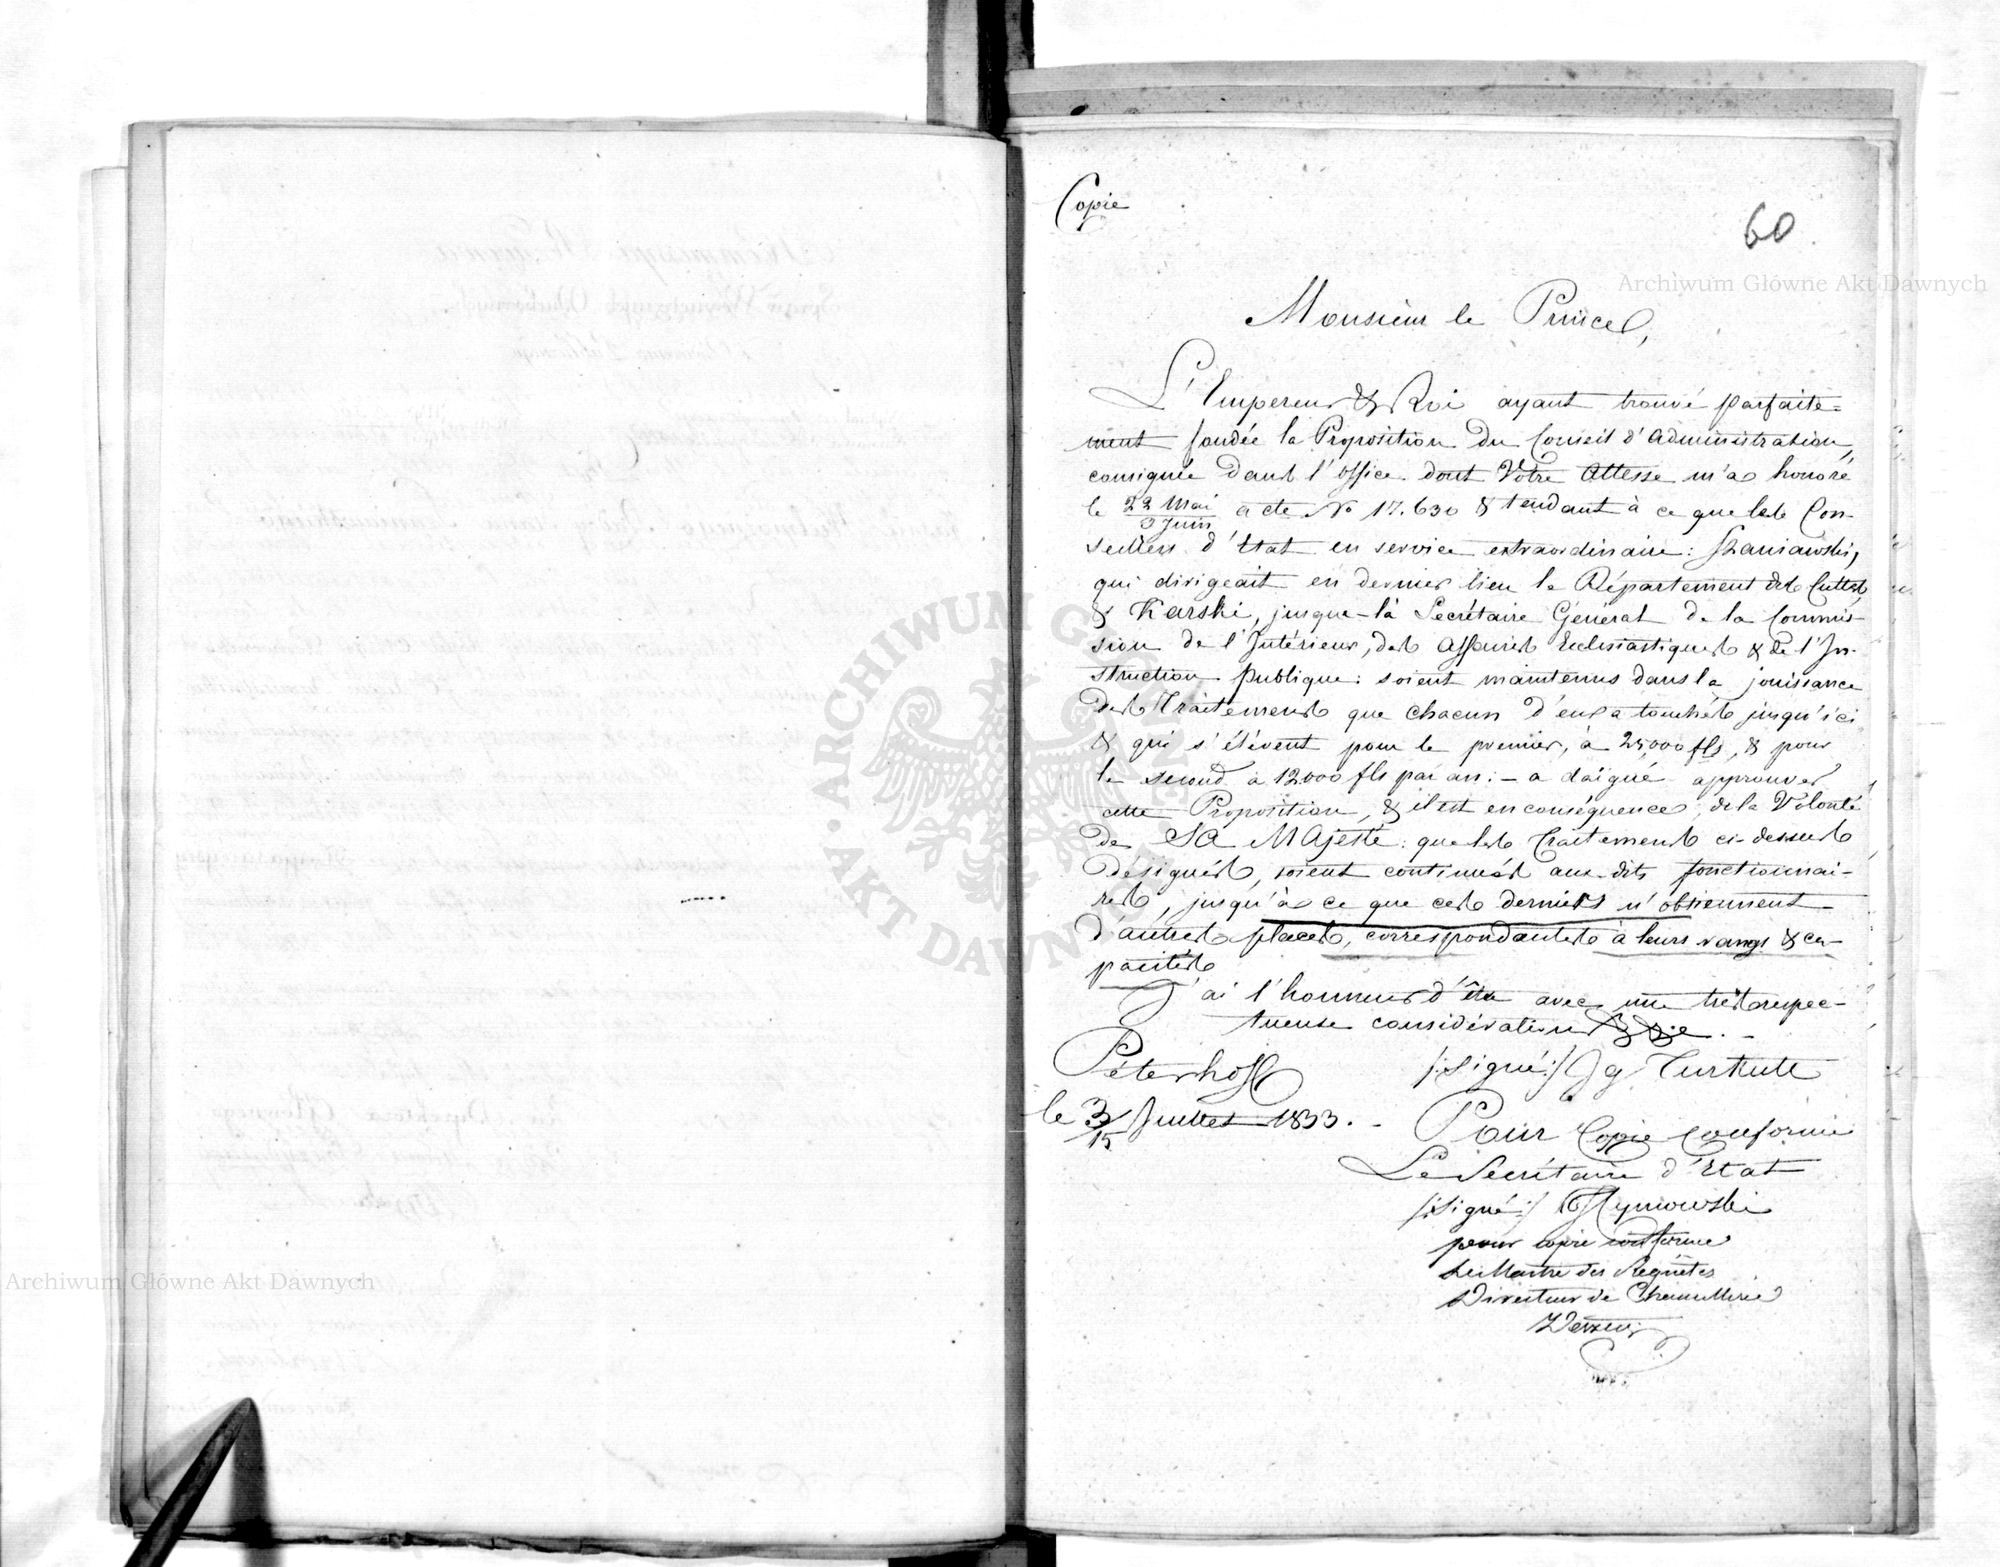 Copie
60
Monsieur le Prince,
L'Empereur & Roi ayant trouvé parfaite-
ment fondée la Proposition du Conseil d'Administration,
consignée dans l'office dont Votre Altesse m'a honoré
le 22 Mai / 3 Juin a cte No 17.630 & tendant à ce que les Con-
seillers d'Etat en service extraordinaire: Szaniawski,
qui dirigeait en dernier lieu le Département des Cultes,
& Karski, jusque-là Secrétaire Général de la Commis-
sion de l'Intérieur, des Affaires Ecclésiastiques & de l'In-
struction publique: soient maintenus dans la jouissance
des Traitements que chacun d'eux a touchés jusqu'ici
& qui s'élèvent pour le premier, à 25,000 fls, & pour
le second à 12000 fls par an: - a daigné approuver
cette Proposition, & il est en conséquence, de la Volonté
de SA MAJESTÉ: que les Traitements ci-dessus
désignés, soient continués aux-dits fonctionnai-
res, jusqu'à ce que ces derniers n'obtiennent
d'autres places, correspondantes à leurs rangs & ca-
pacités
J'ai l'honneur d'être avec une très respec-
tueuse considération
Péterhoff
le 3/15 Juillet 1833. -
/:signé:/ Ig Turkułł
Pour Copie Conforme
Le Secrétaire d'Etat
/:signé:/ Tymowski
pour copie conforme
Le Maitre des Requêtes
Directeur de Chancellerie
Archiwum Główne Akt Dawnych
Archiwum Główne Akt Dawnych
ARCHIWUM GŁÓWNE AKT DAWNYCH